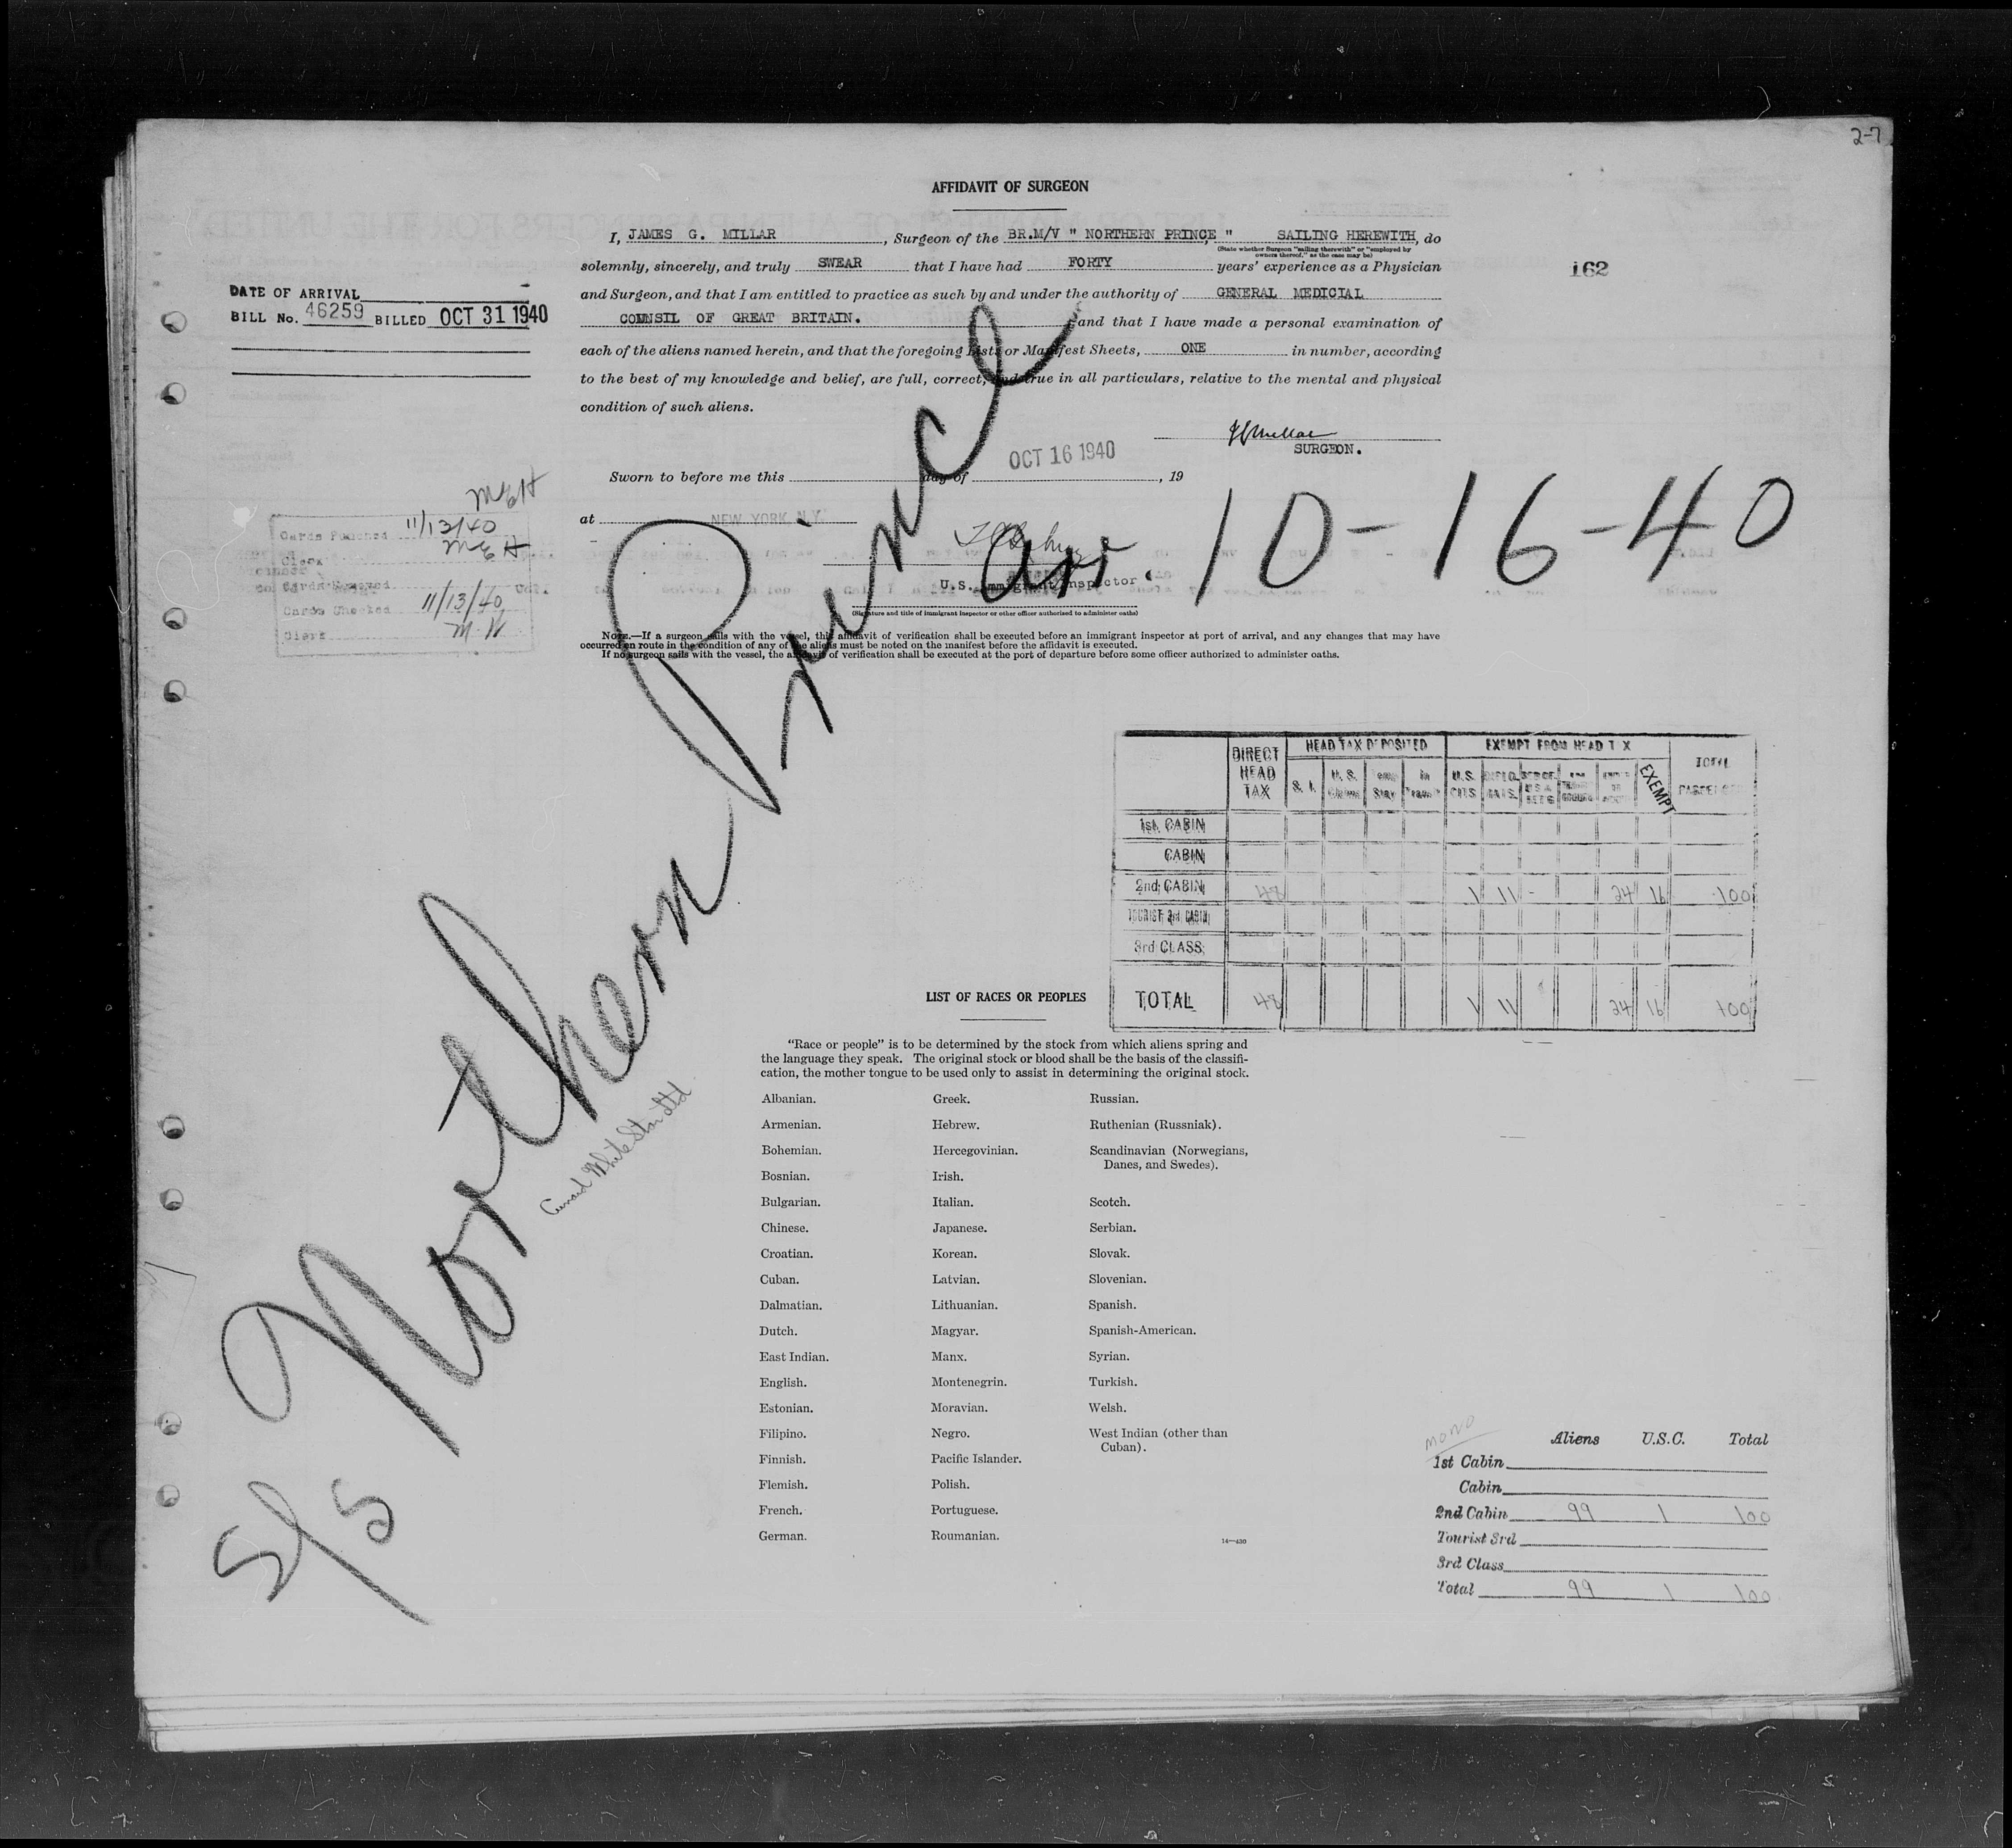 2-7
AFFIDAVIT OF SURGEON
I, JAMES G. MILLAR, Surgeon of the BR.M/V " NORTHERN PRINCE, " SAILING HEREWITH, do
(State whether Surgeon "sailing therewith" or "employed by
owners thereof," as the case may be)
solemnly, sincerely, and truly SWEAR that I have had FORTY years' experience as a Physician
162
and Surgeon, and that I am entitled to practice as such by and under the authority of GENERAL MEDICIAL
COUNSIL OF GREAT BRITAIN. and that I have made a personal examination of
each of the aliens named herein, and that the foregoing Lists or Manifest Sheets, ONE in number, according
to the best of my knowledge and belief, are full, correct, and true in all particulars, relative to the mental and physical
condition of such aliens.
DATE OF ARRIVAL
BILL No. 46259 BILLED OCT 31 1940
SURGEON.
Sworn to before me this day of OCT 16 1940, 19
at NEW YORK N.Y.
U.S. Immigrant Inspector
(Signature and title of immigrant inspector or other officer authorized to administer oaths)
Arr 10-16-40
NOTE.—If a surgeon sails with the vessel, this affidavit of verification shall be executed before an immigrant inspector at port of arrival, and any changes that may have
occurred en route in the condition of any of the aliens must be noted on the manifest before the affidavit is executed.
If no surgeon sails with the vessel, the affidavit of verification shall be executed at the port of departure before some officer authorized to administer oaths.
MEH
Cards Punched 11/13/40
Clerk MEH
Cards Checked 11/13/40
Clerk M H
S/S Northern Prince
Cunard White Star Ltd
DIRECT HEAD TAX
HEAD TAX DEPOSITED
EXEMPT FROM HEAD TAX
TOTAL
S. I.
U.S.
CITS.
EXEMPT
1st CABIN
CABIN
2nd CABIN 48 1 11 - 24 16 100
TOURIST 3rd CABIN
3rd CLASS
TOTAL 48 1 11 24 16 100
LIST OF RACES OR PEOPLES
"Race or people" is to be determined by the stock from which aliens spring and
the language they speak. The original stock or blood shall be the basis of the classifi-
cation, the mother tongue to be used only to assist in determining the original stock.
Albanian.
Armenian.
Bohemian.
Bosnian.
Bulgarian.
Chinese.
Croatian.
Cuban.
Dalmatian.
Dutch.
East Indian.
English.
Estonian.
Filipino.
Finnish.
Flemish.
French.
German.
Greek.
Hebrew.
Hercegovinian.
Irish.
Italian.
Japanese.
Korean.
Latvian.
Lithuanian.
Magyar.
Manx.
Montenegrin.
Moravian.
Negro.
Pacific Islander.
Polish.
Portuguese.
Roumanian.
Russian.
Ruthenian (Russniak).
Scandinavian (Norwegians,
Danes, and Swedes).
Scotch.
Serbian.
Slovak.
Slovenian.
Spanish.
Spanish-American.
Syrian.
Turkish.
Welsh.
West Indian (other than
Cuban).
14—430
mono
Aliens U.S.C. Total
1st Cabin
Cabin
2nd Cabin 99 1 100
Tourist 3rd
3rd Class
Total 99 1 100